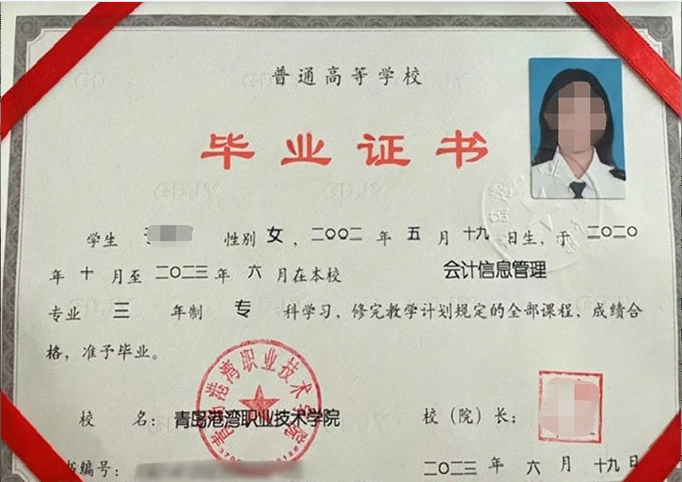 普通高等学校
毕业证书
学生 性别 女，二〇〇二 年 五 月 十九 日生，于 二〇二〇
年 十 月至 二〇二三 年 六 月在本校 会计信息管理
专业 三 年制 专 科学习，修完教学计划规定的全部课程，成绩合
格，准予毕业。
校 名：青岛港湾职业技术学院 校（院）长：
青岛港湾职业技术学院
书编号： 二〇二三 年 六 月 十九 日